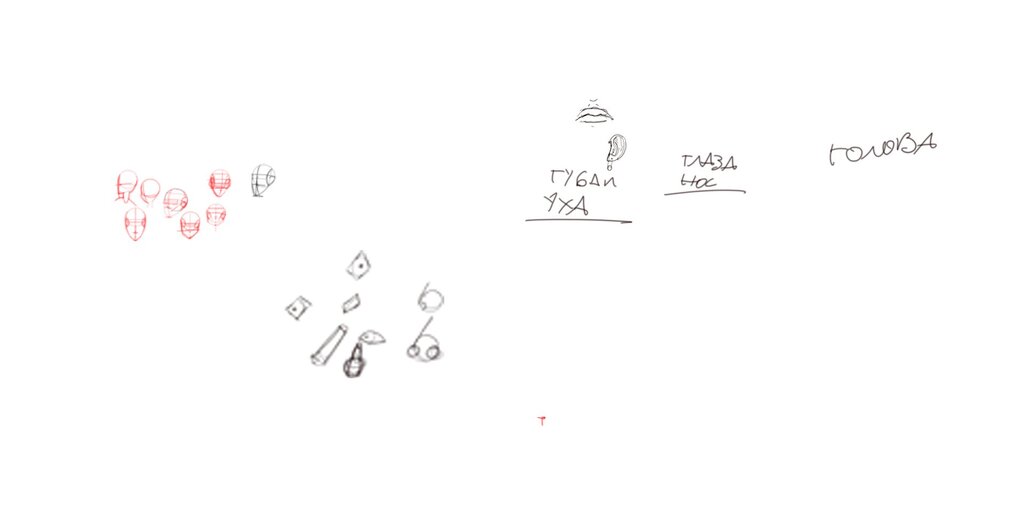 ГУБАИ
УХА
ГЛАЗА
НОС
ГОЛОВА
т